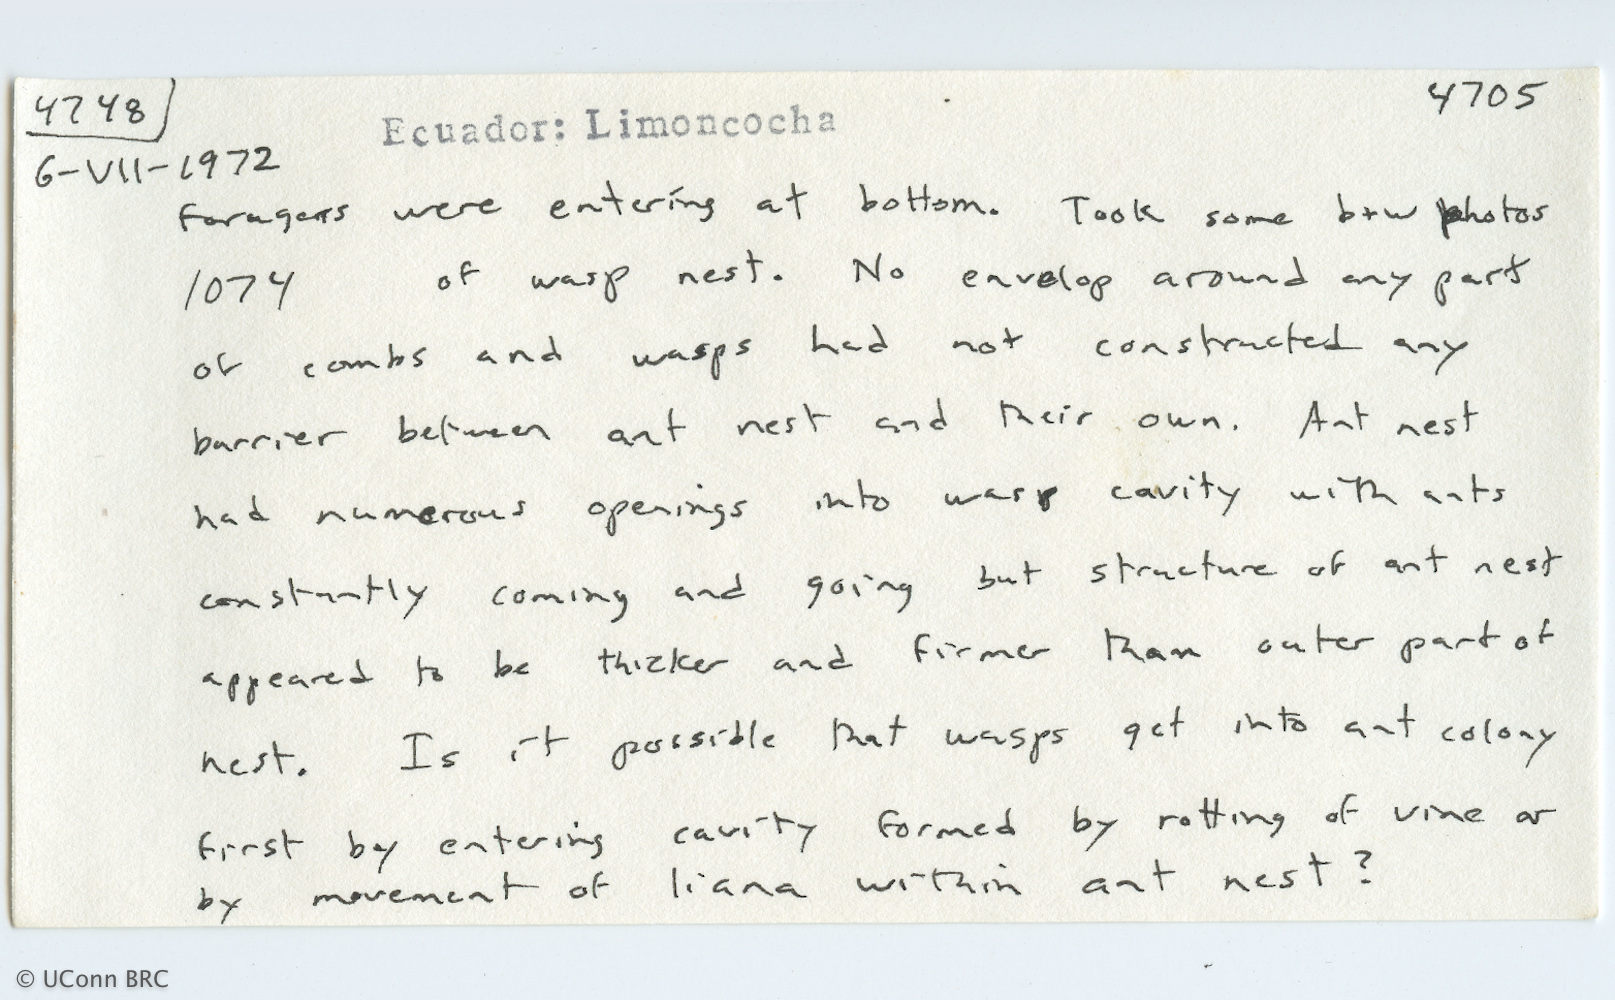 4748
4705
Ecuador: Limoncocha
6-VII-1972
Foragers were entering at bottom. Took some b+w photos
1074 of wasp nest. No envelop around any part
of combs and wasps had not constructed any
barrier between ant nest and their own. Ant nest
had numerous openings into wasp cavity with ants
constantly coming and going but structure of ant nest
appeared to be thicker and firmer than outer part of
nest. Is it possible that wasps get into ant colony
first by entering cavity formed by rotting of vine or
by movement of liana within ant nest?
© UConn BRC